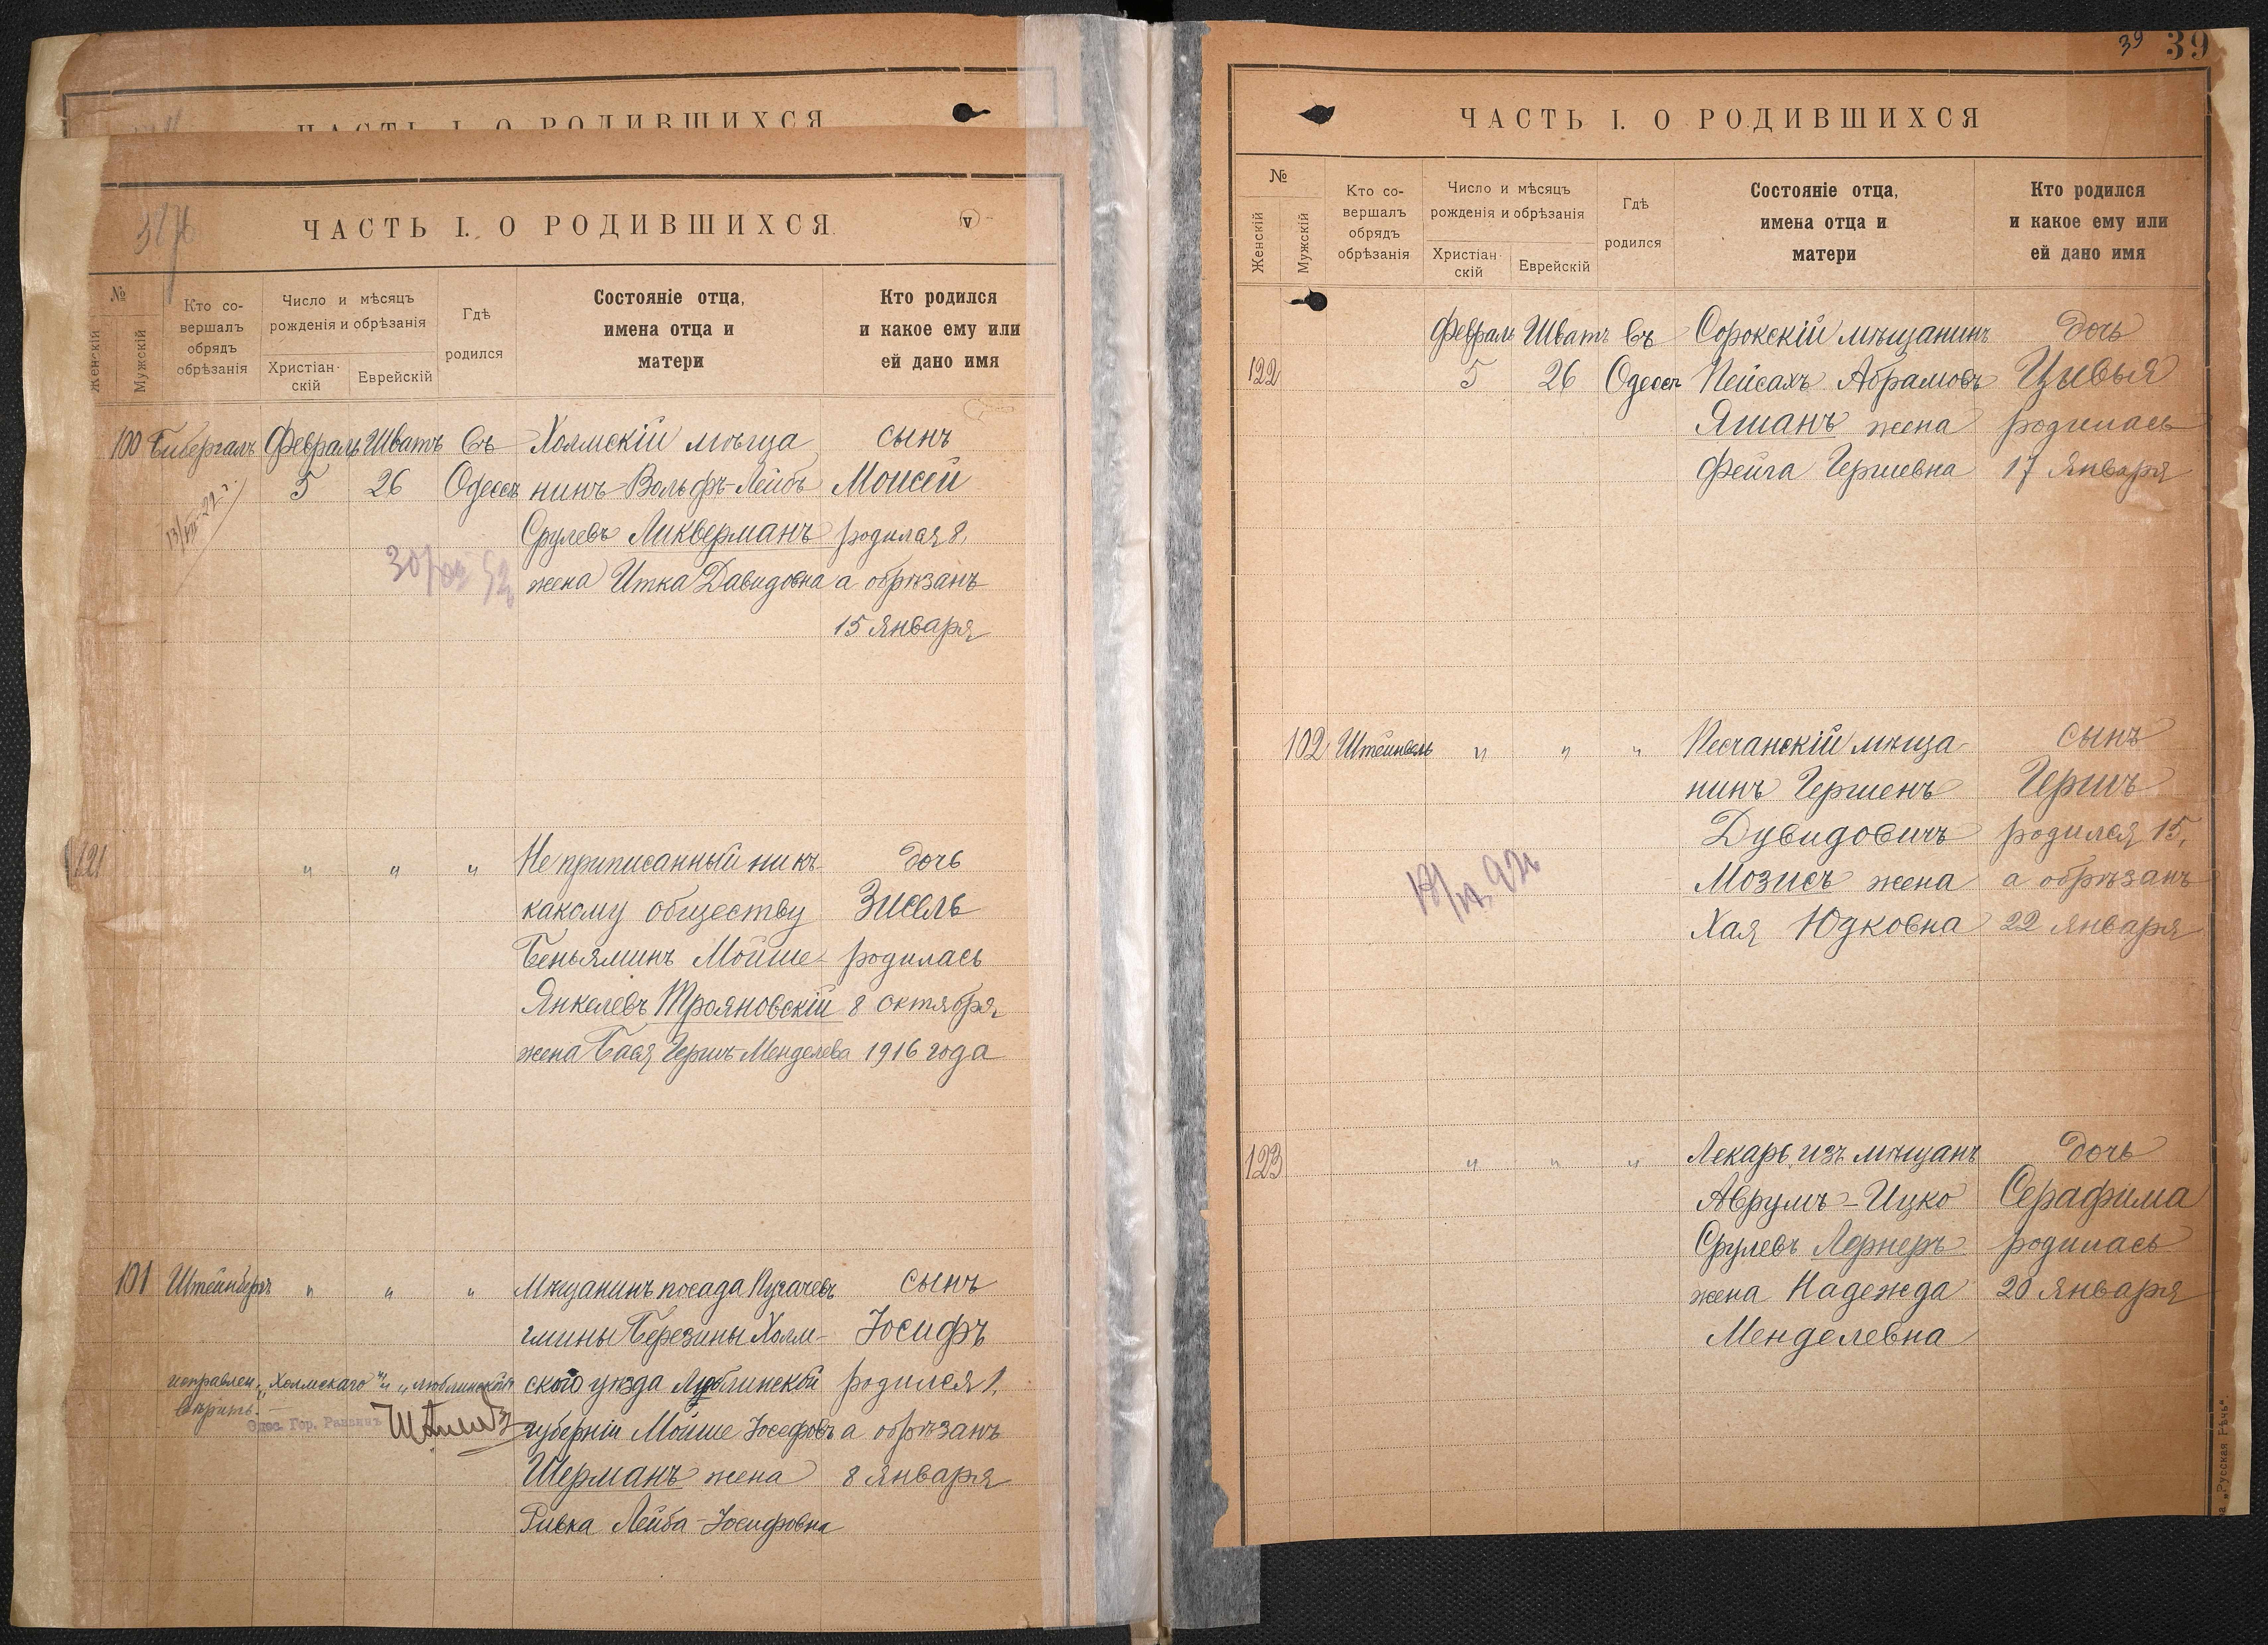 ЧАСТЬ I. О РОДИВШИХСЯ
ЧАСТЬ I. О РОДИВШИХСЯ
№
Женскій
Мужскій
Кто со-
вершалъ
обрядъ
обрѣзанія
Число и мѣсяцъ
рожденія и обрѣзанія
Христіан-
скій
Еврейскій
Гдѣ
родился
Состояніе отца,
имена отца и
матери
Кто родился
и какое ему или
ей дано имя
100 Бибергалъ Февраль Шватъ Въ Холмскій мѣща сынъ
5 26 Одессѣ нинъ Вольфъ-Лейбъ Моисей
Срулевъ Ликверманъ родился 8,
жена Итка Давидовна а обрѣзанъ
15 января
121 " " " Не приписанный ни къ дочь
какому обществу Зисель
Беньяминъ Мойше- родилась
Янкелевъ Трояновскій 8 октября
жена Бася Гершъ-Менделева 1916 года
101 Штейнбергъ " " " Мѣщанинъ посада Пугачевъ сынъ
гмины Березины Холм- Іосифъ
исправлен. "Холмскаго" и "Люблинской" скаго уѣзда Люблинской родился 1,
вѣрить.
Одес. Гор. Раввинъ
губерніи Мойше Іосефовъ а обрѣзанъ
Шерманъ жена 8 января
Ривка Лейба-Іосифовна
39 39
ЧАСТЬ I. О РОДИВШИХСЯ
№
Женскій
Мужскій
Кто со-
вершалъ
обрядъ
обрѣзанія
Число и мѣсяцъ
рожденія и обрѣзанія
Христіан-
скій
Еврейскій
Гдѣ
родился
Состояніе отца,
имена отца и
матери
Кто родился
и какое ему или
ей дано имя
Февраль Шватъ Въ Сорокскій мѣщанинъ дочь
122 5 26 Одессѣ Пейсахъ Абрамовъ Цывья
Яшанъ жена родилась
Фейга Гершевна 17 января
102 " " " Песчанскій мѣща- сынъ
нинъ Гершенъ Гершъ
Дувидовичъ родился 15,
Мозисъ жена а обрѣзанъ
Хая Юдковна 22 января
123 " " " Лекарь изъ мѣщанъ дочь
Аврумъ-Ицко Серафима
Срулевъ Лернеръ родилась
жена Надежда 20 января
Менделевна
"Русская Рѣчь".